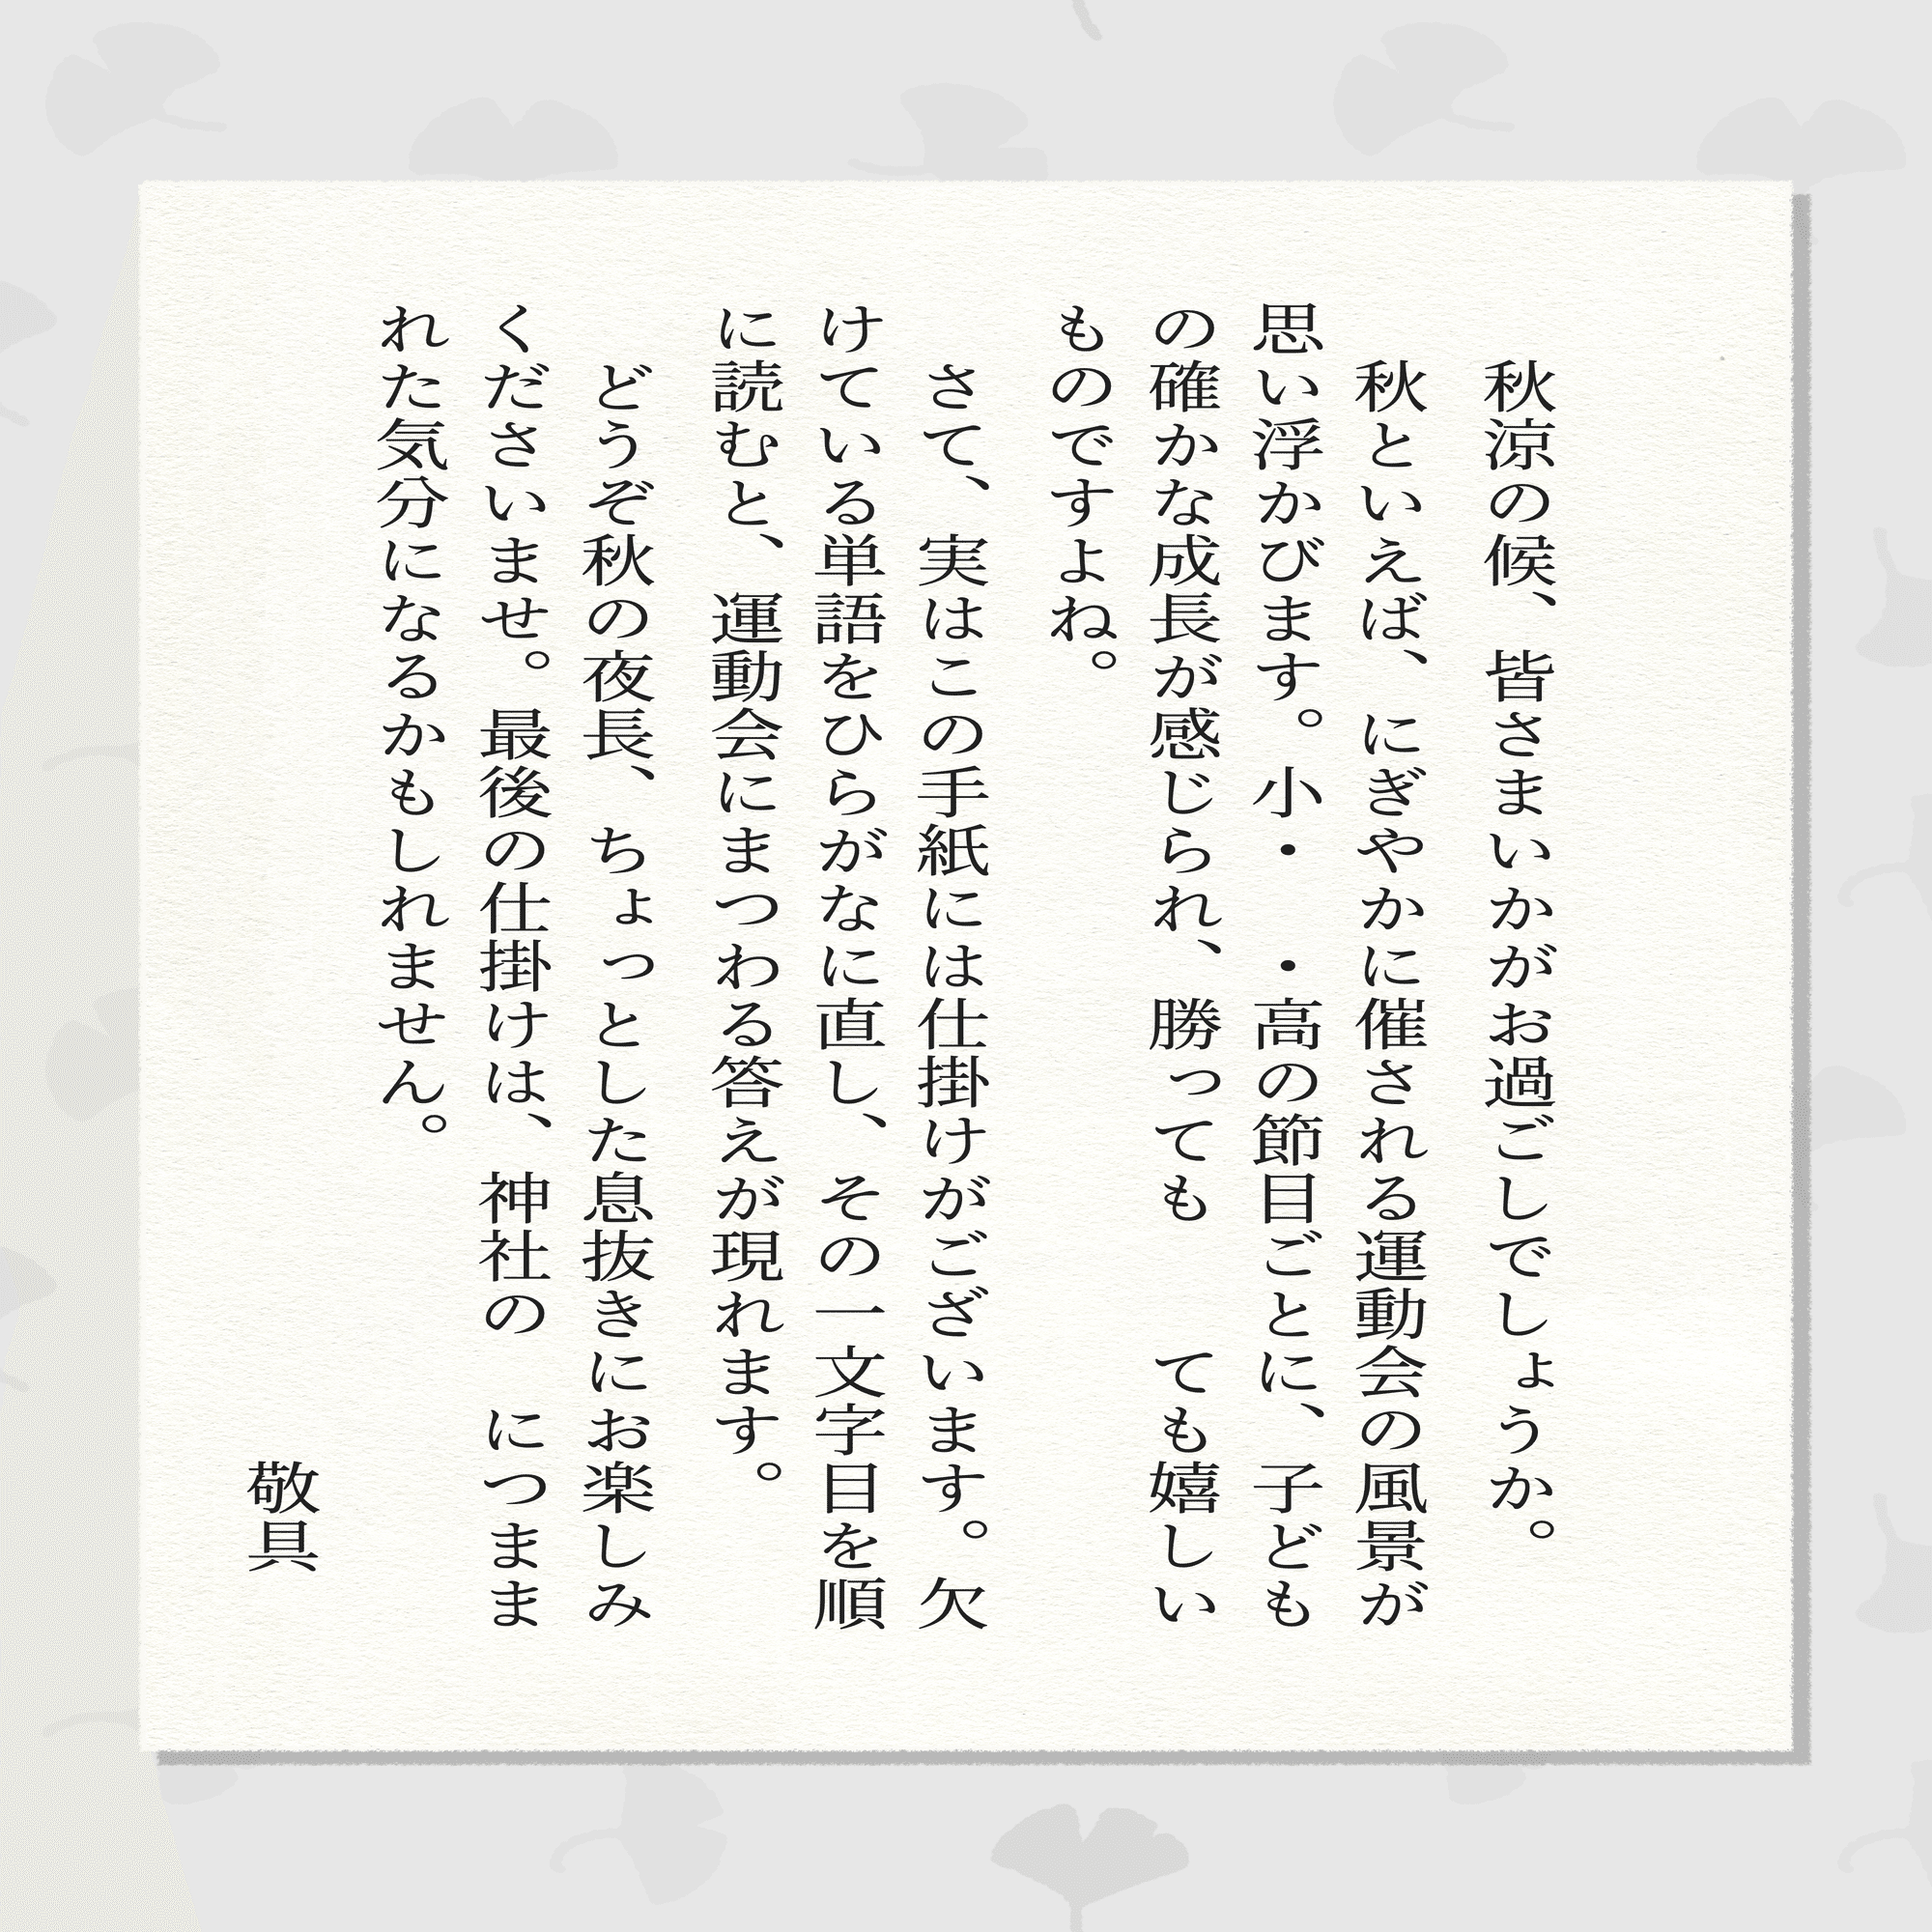 秋涼の候、皆さまいかがお過ごしでしょうか。
秋といえば、にぎやかに催される運動会の風景が
思い浮かびます。小・　・高の節目ごとに、子ども
の確かな成長が感じられ、勝っても　　ても嬉しい
ものですよね。
さて、実はこの手紙には仕掛けがございます。欠
けている単語をひらがなに直し、その一文字目を順
に読むと、運動会にまつわる答えが現れます。
どうぞ秋の夜長、ちょっとした息抜きにお楽しみ
くださいませ。最後の仕掛けは、神社の　につまま
れた気分になるかもしれません。
敬具